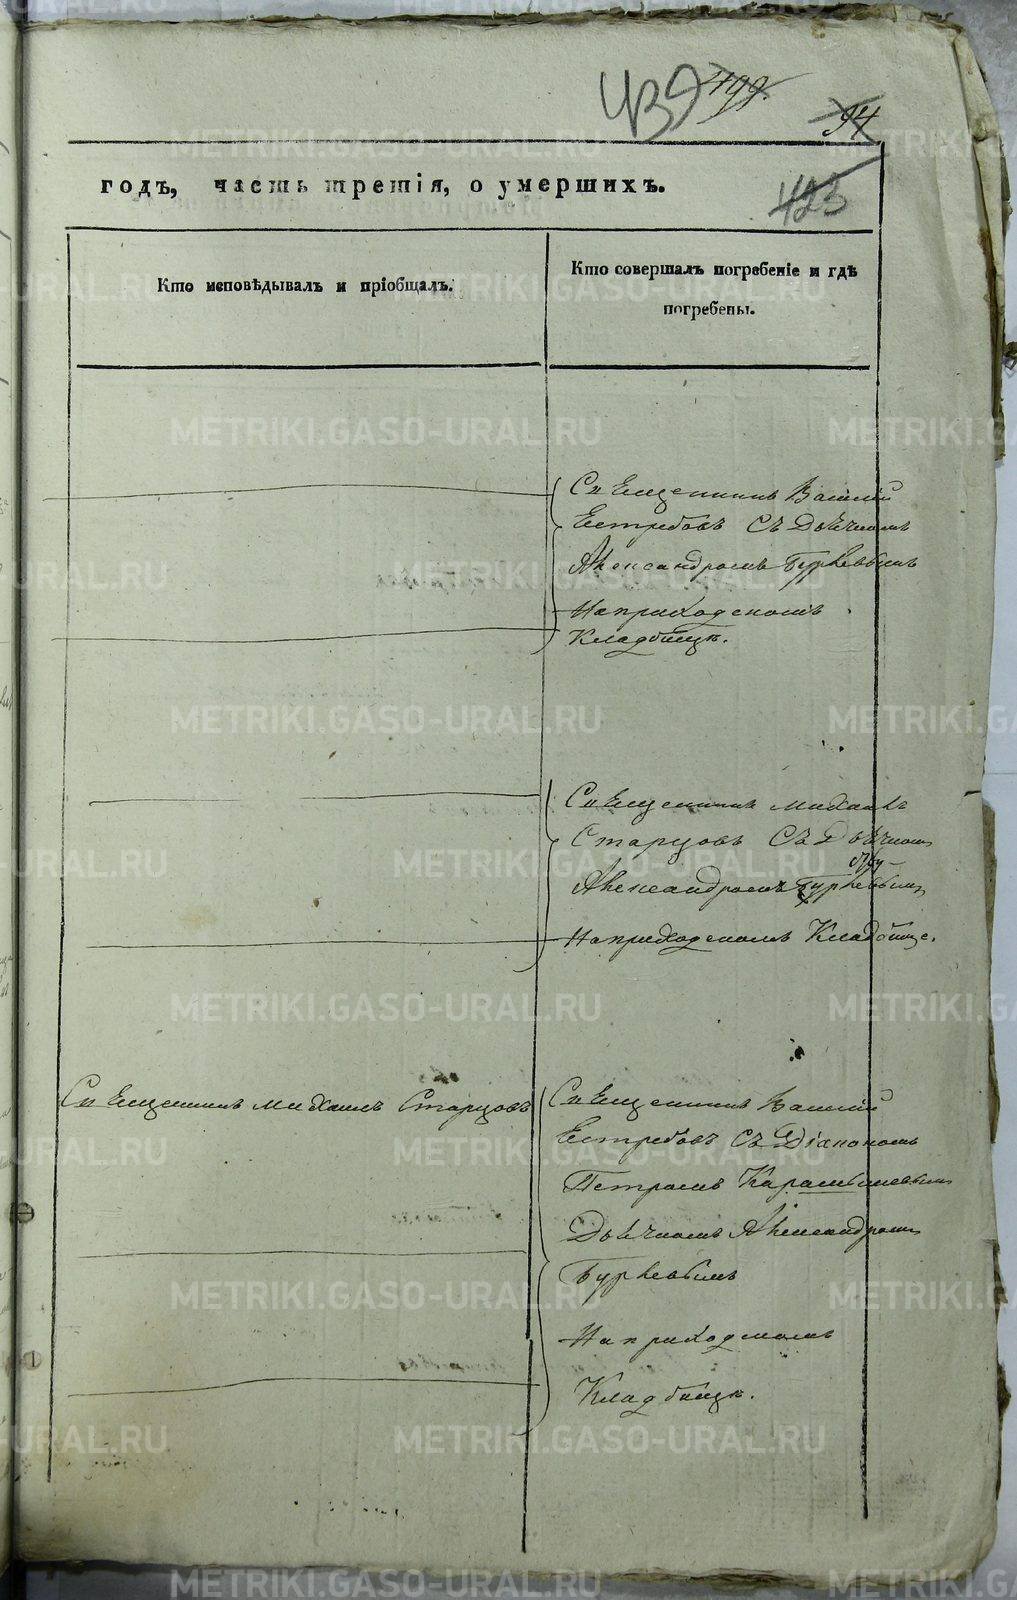 439
499.
94
423
годъ, часть третія, о умершихъ.
Кто исповѣдывалъ и пріобщалъ.
Кто совершалъ погребеніе и гдѣ
погребены.
Священникъ Василій
Ястребовъ съ Дьячкомъ
Александромъ
На приходскомъ
Кладбищѣ.
Священникъ Михаилъ
Старцовъ съ Дьячком
Александромъ
На приходскомъ Кладбище.
Священникъ Михаилъ Старцовъ
Священникъ Василій
Ястребовъ съ Діакономъ
Петромъ Карамышевым
Дьячкомъ Александром
На приходскомъ
Кладбищѣ.
METRIKI.GASO-URAL.RU